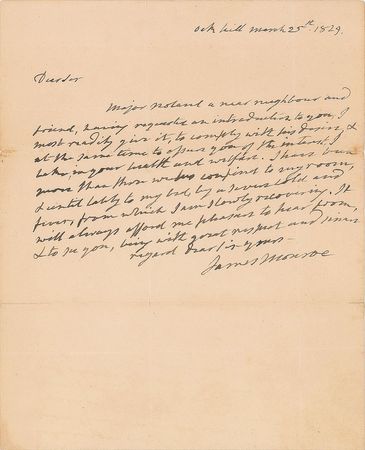 Oak hill march 25th. 1829.
Dear Sir
Major Noland a near neighbour and
friend, having requested an introduction to you, I
most readily give it, to comply with his desire, &
at the same time to assure you of the interest I
take, in your health and welfare. I have been
more than three weeks confind to my room,
& until lately to my bed, by a severe cold and
fever, from which I am slowly recovering. It
will always afford me pleasure to hear from,
& to see you, being with great respect and sincere
regard dear Sir yours
James Monroe